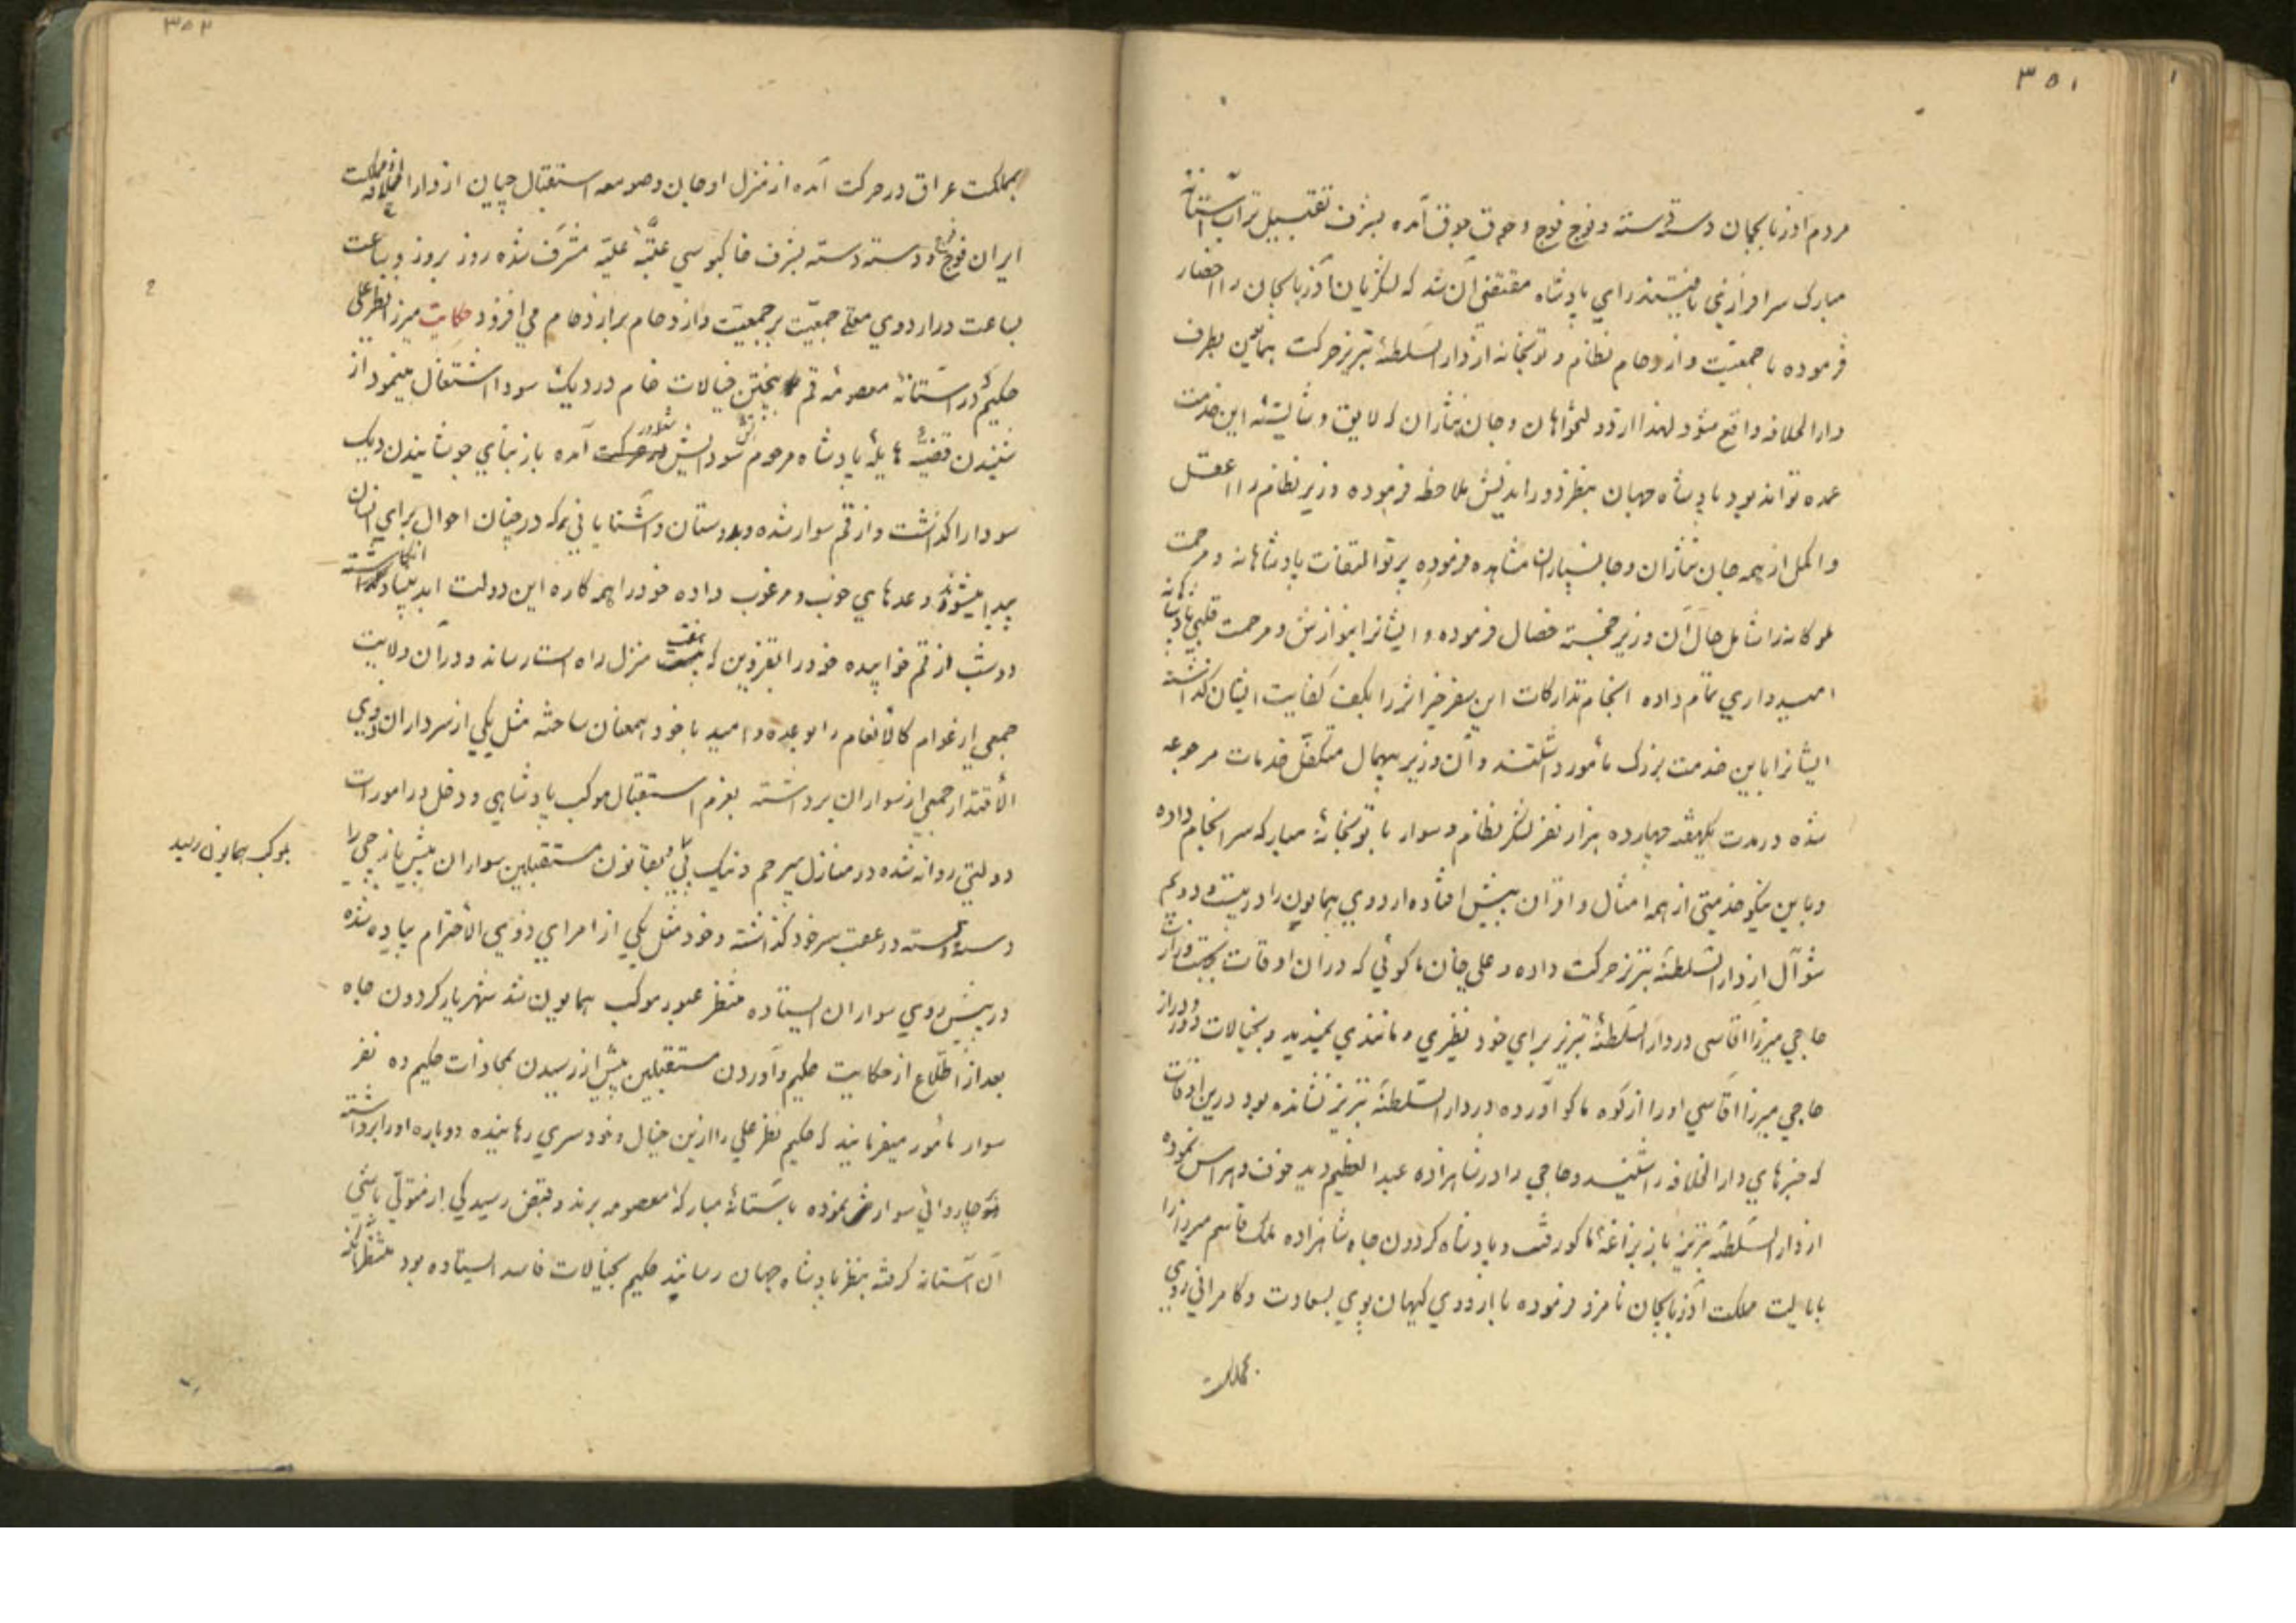 ۳۵۱
مردم آذربایجان دسته دسته و فوج فوج و جوق جوق آمده بشرف تقبیل تراب آستانه
مبارک سرافرازی یافتند رای پادشاه مقتضی آن شد که لشکریان آذربایجان را احضار
فرموده با جمعیت و ازدحام نظام و توپخانه از دارالسلطنهٔ تبریز حرکت بهمایین بطرف
دارالخلافه واقع شود لهذا از دولتخواهان و جان نثاران که لایق و شایستهٔ این خدمت
عمده تواند بود پادشاه جهان بنظر دور اندیش ملاحظه فرموده وزیر نظام را اعقل
و اکمل از همه جان نثاران و جانسپاران مشاهده فرموده پرتو التفات پادشاهانه و مرحمت
ملوکانه را شامل حال آن وزیر خجسته خصال فرموده و ایشانرا بنوازش و مرحمت قلبی پادشاهانه
امیدواری تمام داده انجام تدارکات این سفر خیر اثر را بکف کفایت ایشان گذاشته
ایشانرا باین خدمت بزرگ مأمور داشتند و آن وزیر بیهمال متکفل خدمات مرجوعه
شده در مدت یکهفته چهارده هزار نفر لشکر نظام و سوار با توپخانهٔ مبارکه سرانجام داده
و باین نیکو خدمتی از همه امثال و اقران پیش افتاده اردوی همایون را در بیست و دویم
شوال از دارالسلطنهٔ تبریز حرکت داده و علی خان ماکوئی که در آن اوقات
حاجی میرزا آقاسی در دارالسلطنهٔ تبریز برای خود نظیری و مانندی نمیدید و بخیالات دور و دراز
حاجی میرزا آقاسی او را از کوه ماکو آورده در دارالسلطنهٔ تبریز نشانده بود درین اوقات
که خبرهای دارالخلافه را شنید و حاجی را در شاهزاده عبدالعظیم دید خوف و هراس نموده
از دارالسلطنهٔ تبریز باز بزاغهٔ ماکو رفت و پادشاه گردون جاه شاهزاده ملک قاسم میرزا را
بایالت مملکت آذربایجان نامزد فرموده با اردوی کیهان پوی بسعادت و کامرانی روی
بمملکت
۳۵۲
بمملکت عراق در حرکت آمده از منزل اوجان و صومعه استقبال چیان از دارالخلافه و مملکت
ایران فوج فوج و دسته دسته بشرف خاکبوسی عتبهٔ علیه مشرف شده روز بروز و ساعت
بساعت در اردوی معلی جمعیت بر جمعیت و ازدحام بر ازدحام می افزود حکایت میرزا نظر علی
حکیم در آستانهٔ معصومهٔ قم بپختن خیالات خام در دیک سودا اشتغال مینمود از
شنیدن قضیهٔ هایلهٔ پادشاه مرحوم سودایش در حرکت آمده باز بنای جوشانیدن دیک
سودا را گذاشت و از قم سوار شده و بدوستان و آشنایانی که در چنان احوال برای انسان
پیدا میشود وعدهای خوب و مرغوب داده خود را همه کاره این دولت ابد بنیاد انگاشته
دو شب از قم خوابیده خود را بقزوین که هفت منزل راه است رساند و در آن ولایت
جمعی از عوام کالأنعام را بوعده و امید با خود همعنان ساخته مثل یکی از سرداران ذوی
الأقتدار جمعی از سواران برداشته بعزم استقبال موکب پادشاهی و دخل در امورات
دولتی روانه شده در منازل سرچم و نیک پی بقانون مستقبلین سواران پیش باز چی را
بموکب همایون رسید
دسته دسته در عقب سر خود گذاشته و خود مثل یکی از امرای ذوی الأحترام پیاده شده
در پیش روی سواران ایستاده منتظر عبور موکب همایون شد شهریار گردون جاه
بعد از اطلاع از حکایت حکیم و آوردن مستقبلین پیش از رسیدن بمحاذات حکیم ده نفر
سوار مأمور میفرمایند که حکیم نظر علی را ازین خیال و خود سری رهانیده دوباره او را برداشته
چاروائی سوارش نموده بآستانهٔ مبارکهٔ معصومه برند و قبض رسیدگی از متولی باشی
آن آستانه گرفته بنظر پادشاه جهان رسانند حکیم بخیالات فاسد ایستاده بود منتظر اینکه